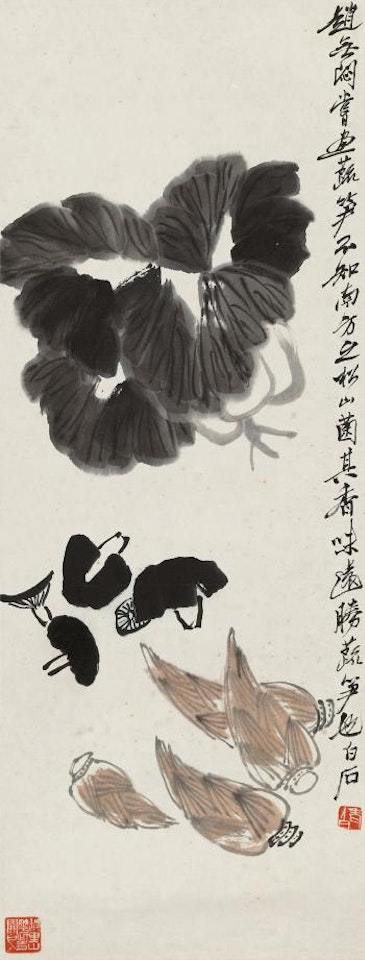 趙無悶嘗画蔬筍不知南方之松山菌其香味遠勝蔬筍也白石